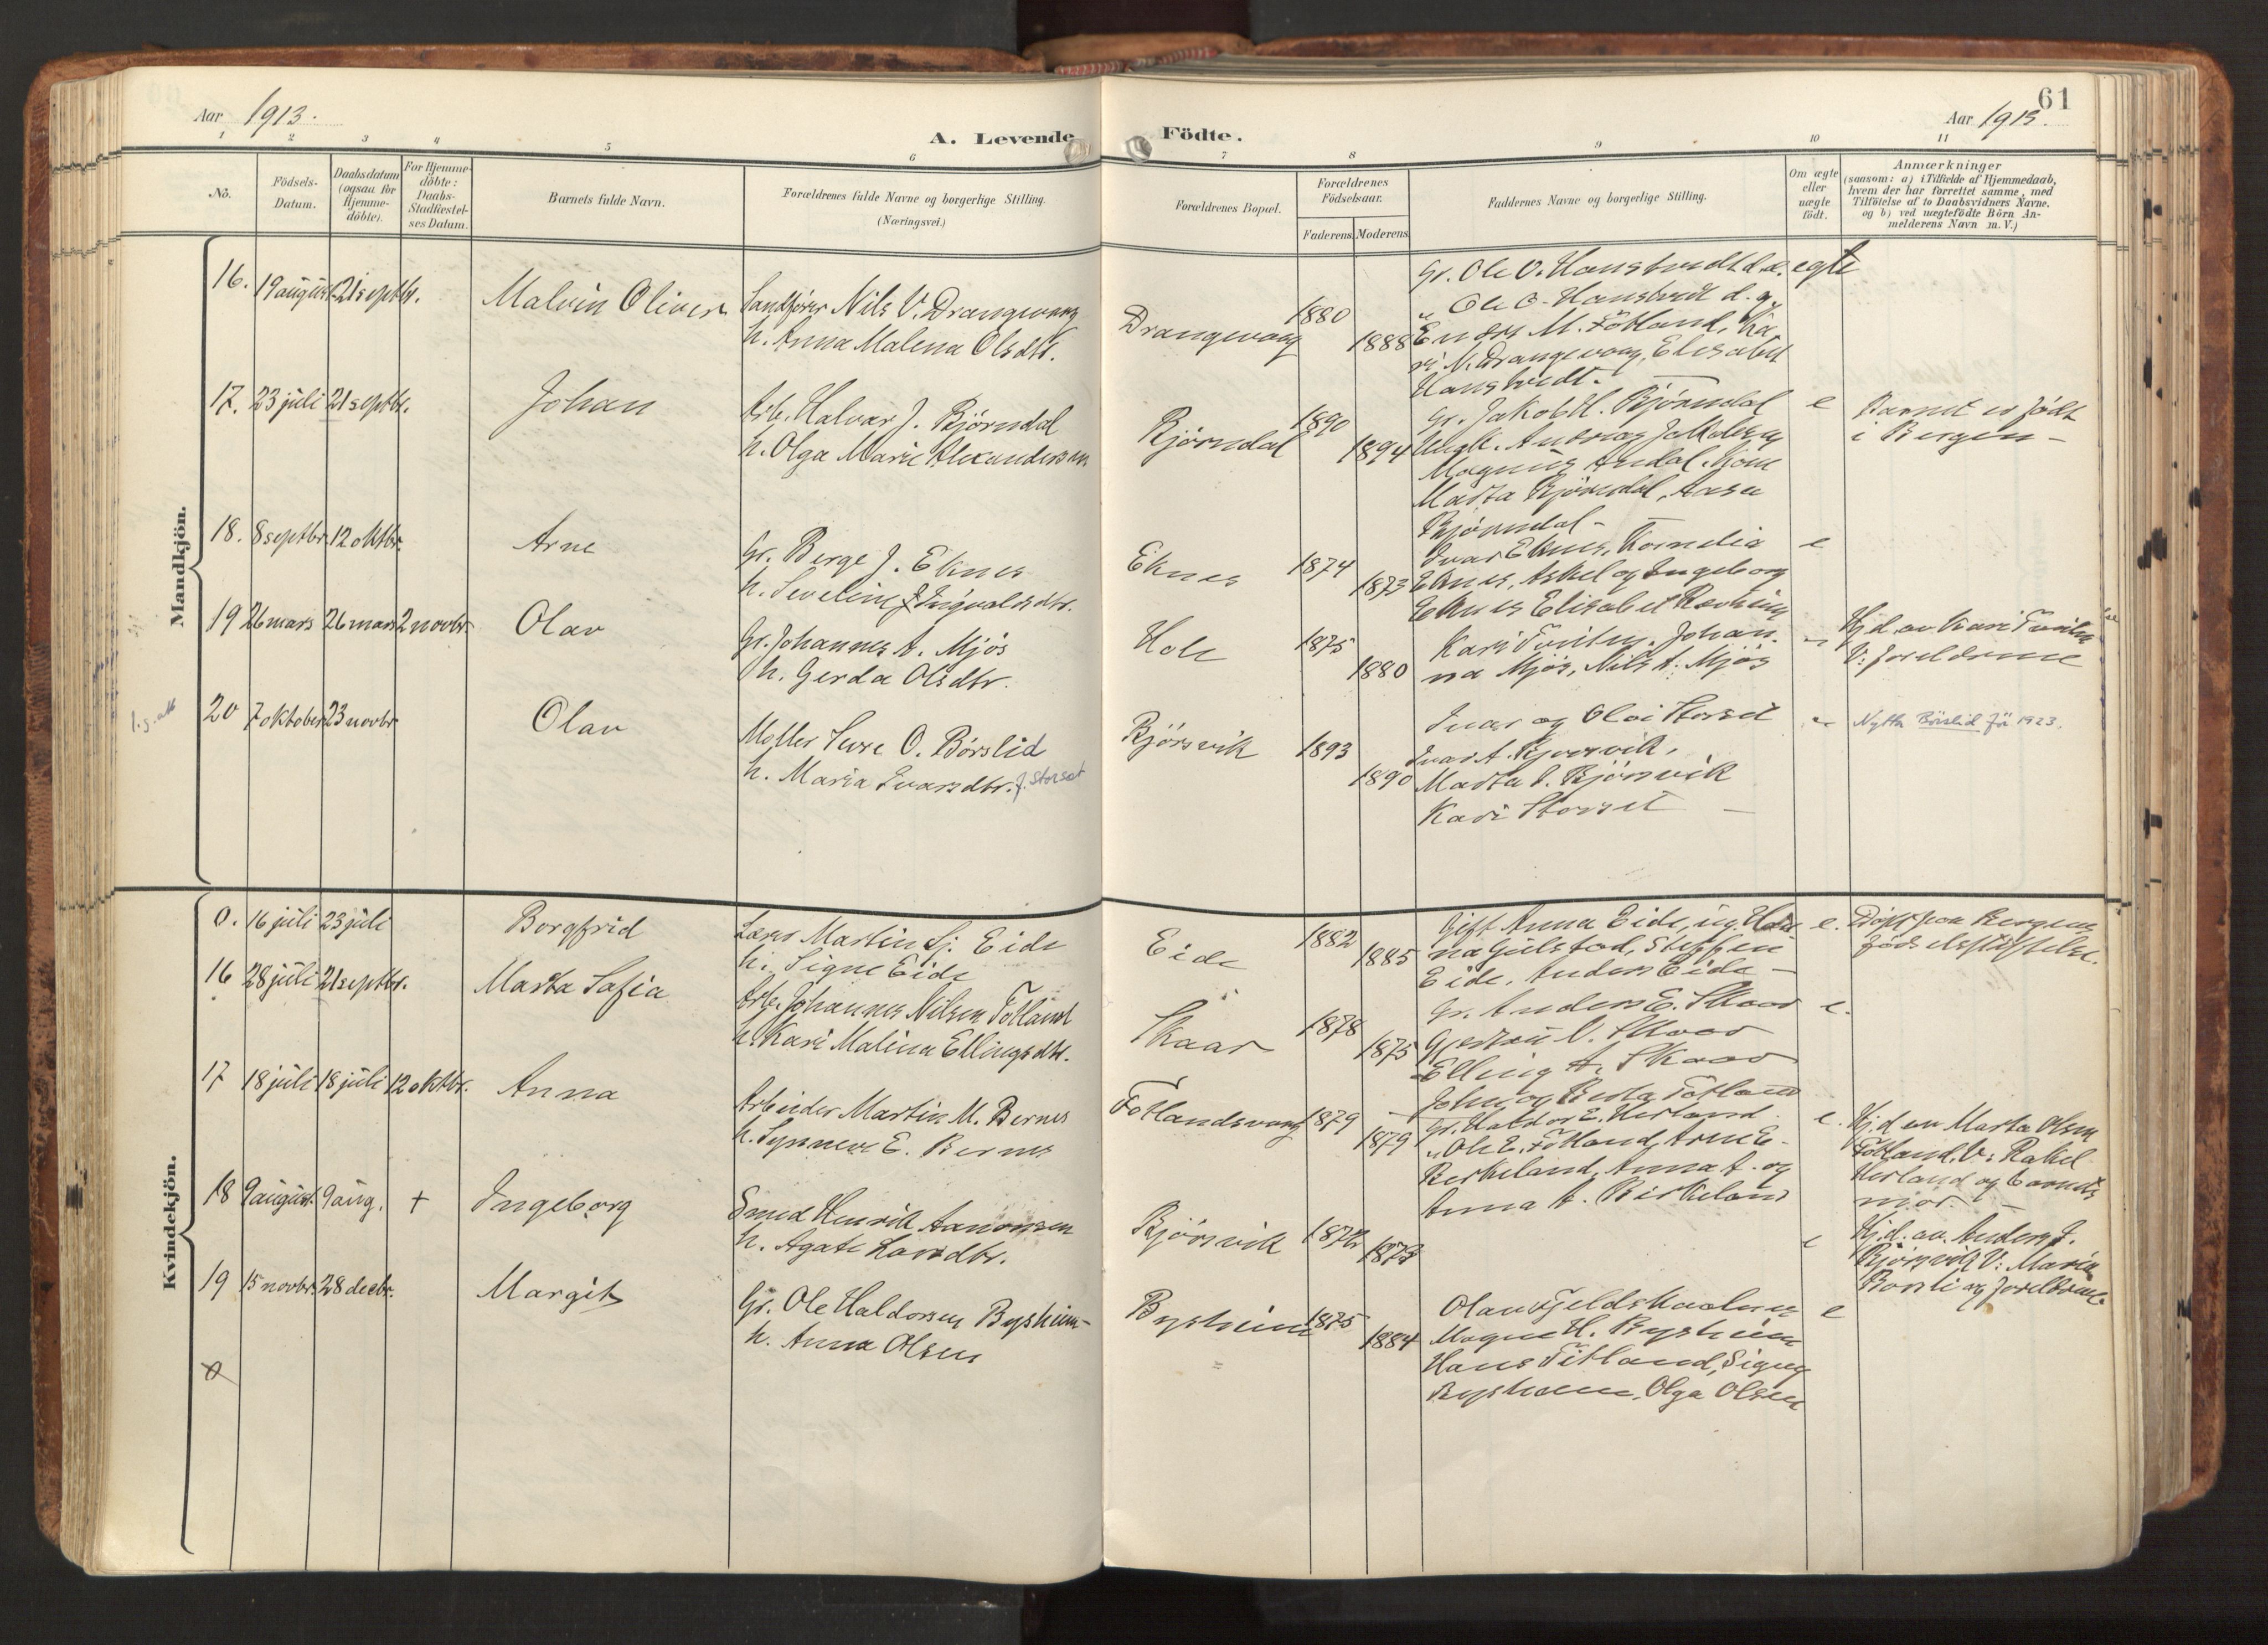 Aar 1913.
A. Levende Födte.
Aar 1913.
61
1 2 3 4 5 6 7 8 9 10 11
No.
Födsels-Datum.
Daabsdatum (ogsaa for Hjemme-döbte).
For Hjemme-döbte: Daabs-Stadfæstel-ses Datum.
Barnets fulde Navn.
Forældrenes fulde Navne og borgerlige Stilling. (Næringsvei.)
Forældrenes Bopæl.
Forældrenes Födselsaar.
Faderens. Moderens.
Faddernes Navne og borgerlige Stilling.
Om ægte eller uægte födt.
Anmærkninger
(saasom: a) i Tilfælde af Hjemmedaab,
hvem der har forrettet samme, med
Tilföielse af to Daabsvidners Navne,
og b) ved uægtefödte Börn An-
melderens Navn m. V.)
Mandkjön.
16. 19 august 21 septbr. Malvin Oliver
Nils V. Drangevaag
h. Anna Malena Olsdtr.
Drangevaag 1880 1888
Gr. Ole O. Hanstvedt d. æ. egte
" Ole O. Hanstvedt d. y.
M. Fötland, Ka-
ri N. Drangevaag, Elisabet
Hanstvedt.
17. 23 juli 21 septbr. Johan
Arb. Halvar J. Björndal
h. Olga Marie Alexandersen
Björndal 1890 1894
Gr. Jakob H. Björndal e
Ungk. Andreas Jakobsen
Magnus
Marta Björndal, Aasa
Björndal -
Barnet er født
i Bergen -
18. 8 septbr. 12 oktbr. Arne
Gr. Berge J. Eknes
h. Seveline J. Ingvaldsdtr.
Eknes 1874 1873
Ivar Eknes, Kornelia e
Eknes, Askel og Ingeborg
Eknes Elisabet
19 26 mars 26 mars 2 novbr. Olav
Gr. Johannes A. Mjös
h. Gerda Olsdtr.
Hole 1875 1880
Kari Johan-
na Mjös, Nils A. Mjös
Hj. d. av Kari
V: foreldrene
20 7 oktober 23 novbr. Olav
Möller Sivre O. Börslid
h. Maria Ivarsdtr. f. Storset
Bjørsvik 1893 1890
Ivar og Storset
Ivar A. Bjørsvik,
Marta I. Bjørsvik
Kari Storset -
Nytta Börslid frå 1923.
Kvindekjön.
0. 16 juli 23 juli Borgfrid
Lars Martin Sj. Eide
h. Signe Eide
Eide 1882 1885
Gift Anna Eide, ug. e.
na Steffen
Eide, Anders Eide -
Døpt paa Bergens
fødselsstiftelse.
16 28 juli 21 septbr. Marta Sofia
Arb. Johannes Nilsen Fotland
h. Kari Malina Ellingsdtr.
Skaar 1878 1875
Gr. Anders E. Skaar e.
Gjertru O. Skaar
Elling A. Skaar
Johan og Berta Fotland
17 18 juli 18 juli 12 oktbr. Anna
Arbeider Martin M. Bernes
h. Synneve E. Bernes
Fotlandsvaag 1879 1879
Gr. Haldor E. Herland e.
" Ole E. Fotland, Arne E.
Birkeland, Anna A. og
Anna A. Birkeland
Hj. d. av Marta Olsen
Fotland. V: Rakel
Herland og barnets
mor. -
18 9 august 9 aug. + Ingeborg
Smed Henrik Aanonsen
h. Agate Larsdtr.
Bjørsvik 1872 1873 e
Hj. d. av. Anders J.
Bjørsvik V: Maria
og foreldrene
19 15 novbr. 28 decbr. Margit
Gr. Ole Haldorsen Bysheim -
h. Anna Olsen
Bysheim 1875 1884
Olav Fjeldskaalnes e
Magne H. Bysheim
Hans Titland, Signy
Bysheim, Olga Olsen